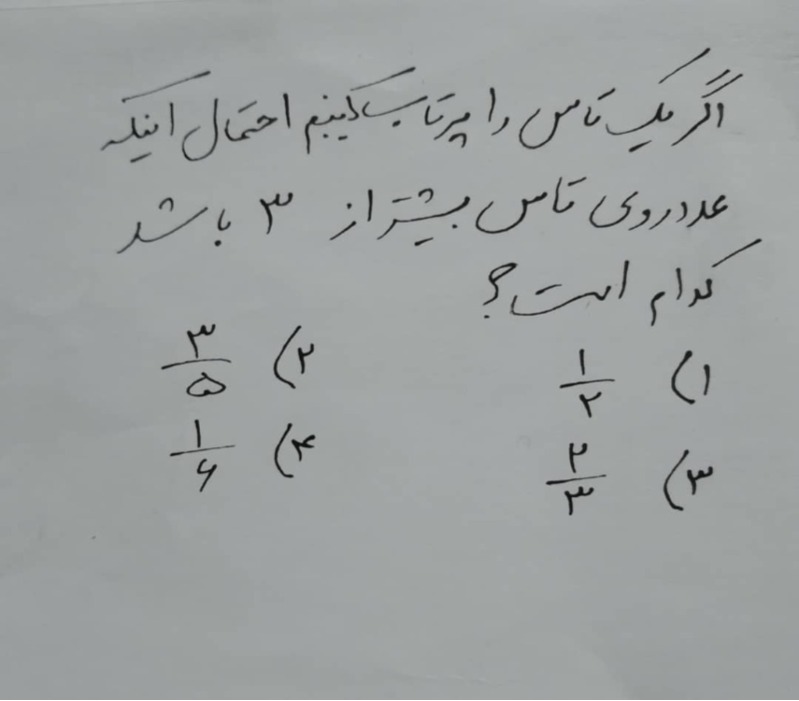 اگر یک تاس را پرتاب کنیم احتمال اینکه
عدد روی تاس بیشتر از ۳ باشد
کدام است؟
۱) ۱/۲ ۲) ۳/۵
۳) ۲/۳ ۴) ۱/۶